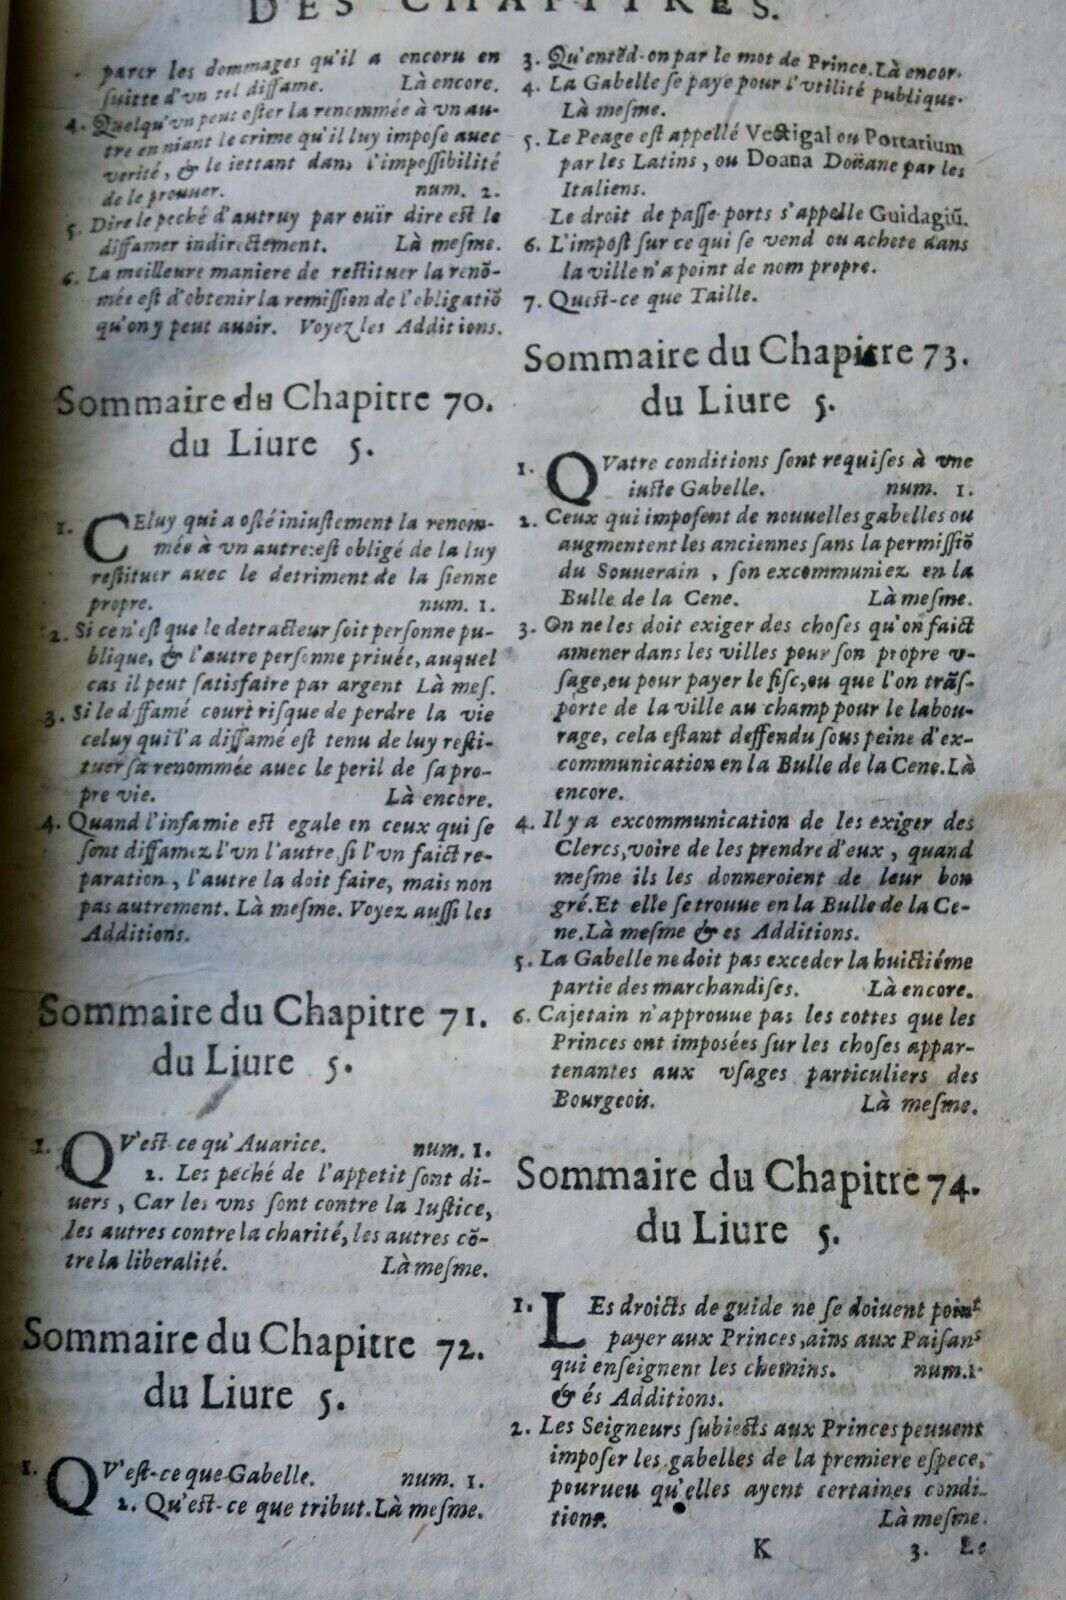 DES CHAPITRES.
parer les dommages qu'il a encoru en
ſuitte d'vn tel diffame. Là encore.
4. Quelqu'vn peut oſter la renommée à vn au-
tre en niant le crime qu'il luy impoſe auec
verité, & le iettant dans l'impoſſibilité
de le prouuer. num. 2.
5. Dire le peché d'autruy par ouïr dire eſt le
diffamer indirectement. Là meſme.
6. La meilleure maniere de reſtituer la renõ-
mée eſt d'obtenir la remiſſion de l'obligatiõ
qu'on y peut auoir. Voyez les Additions.
Sommaire du Chapitre 70.
du Liure 5.
1. CEluy qui a oſté iniuſtement la renom-
mée à vn autre:eſt obligé de la luy
reſtituer auec le detriment de la ſienne
propre. num. 1.
2. Si ce n'eſt que le detracteur ſoit perſonne pu-
blique, & l'autre perſonne priuée, auquel
cas il peut ſatisfaire par argent Là meſ.
3. Si le diffamé court riſque de perdre la vie
celuy qui l'a diffamé eſt tenu de luy reſti-
tuer ſa renommée auec le peril de ſa pro-
pre vie. Là encore.
4. Quand l'infamie eſt egale en ceux qui ſe
ſont diffamez l'vn l'autre ſi l'vn faict re-
paration, l'autre la doit faire, mais non
pas autrement. Là meſme. Voyez auſſi les
Additions.
Sommaire du Chapitre 71.
du Liure 5.
1. QV'eſt ce qu'Auarice. num. 1.
2. Les peché de l'appetit ſont di-
uers, Car les vns ſont contre la Iuſtice,
les autres contre la charité, les autres cõ-
tre la liberalité. Là meſme.
Sommaire du Chapitre 72.
du Liure 5.
1. QV'eſt-ce que Gabelle. num. 1.
2. Qu'eſt-ce que tribut. Là meſme.
3. Qu'entẽd-on par le mot de Prince. Là encor.
4. La Gabelle ſe paye pour l'vtilité publique.
Là meſme.
5. Le Peage eſt appellé Vectigal ou Portarium
par les Latins, ou Doana Doüane par les
Italiens.
Le droit de paſſe-ports s'appelle Guidagiũ.
6. L'impoſt ſur ce qui ſe vend ou achete dans
la ville n'a point de nom propre.
7. Queſt-ce que Taille.
Sommaire du Chapitre 73.
du Liure 5.
1. QVatre conditions ſont requiſes à vne
iuſte Gabelle. num. 1.
2. Ceux qui impoſent de nouuelles gabelles ou
augmentent les anciennes ſans la permiſſiõ
du Souuerain, ſon excommuniez en la
Bulle de la Cene. Là meſme.
3. On ne les doit exiger des choſes qu'on faict
amener dans les villes pour ſon propre v-
ſage, ou pour payer le fiſc, ou que l'on trãſ-
porte de la ville au champ pour le labou-
rage, cela eſtant deffendu ſous peine d'ex-
communication en la Bulle de la Cene. Là
encore.
4. Il y a excommunication de les exiger des
Clercs, voire de les prendre d'eux, quand
meſme ils les donneroient de leur bon
gré. Et elle ſe trouue en la Bulle de la Ce-
ne. Là meſme & es Additions.
5. La Gabelle ne doit pas exceder la huictiéme
partie des marchandiſes. Là encore.
6. Cajetain n'approuue pas les cottes que les
Princes ont impoſées ſur les choſes appar-
tenantes aux vſages particuliers des
Bourgeois. Là meſme.
Sommaire du Chapitre 74.
du Liure 5.
1. LEs droicts de guide ne ſe doiuent point
payer aux Princes, ains aux Paiſans
qui enſeignent les chemins. num. 1.
& és Additions.
2. Les Seigneurs ſubiects aux Princes peuuent
impoſer les gabelles de la premiere eſpece,
pourueu qu'elles ayent certaines condi-
tions. Là meſme.
K 3. Le